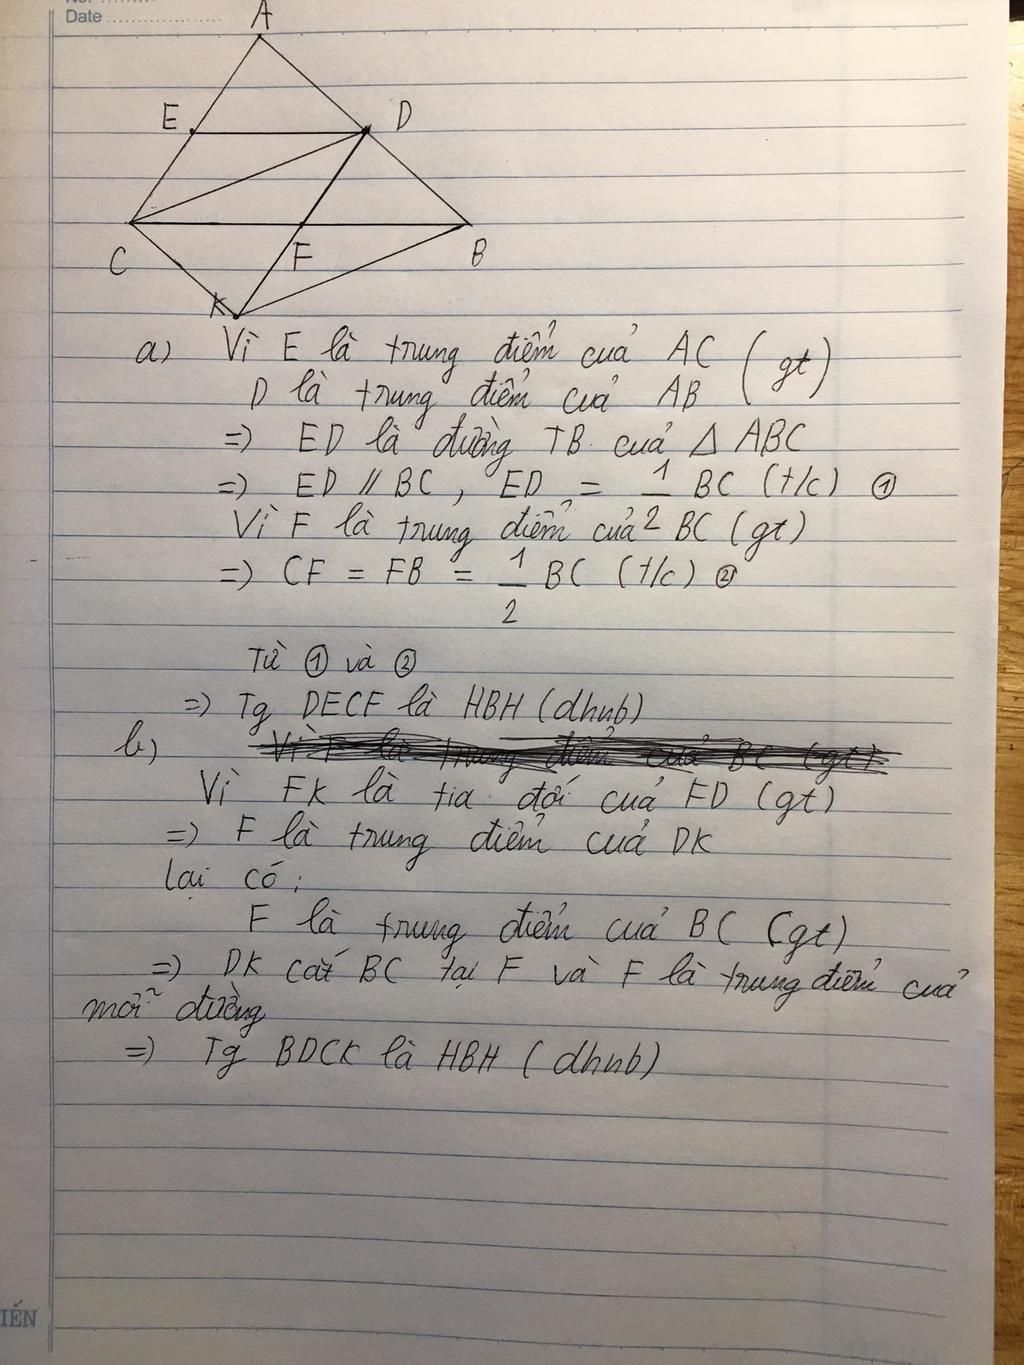 Date
A
E D
C F B
K
a) Vì E là trung điểm cuả AC (gt)
D là trung điểm cuả AB
=) ED là đường TB cuả Δ ABC
=) ED // BC, ED = 1/2 BC (t/c) ①
Vì F là trung điểm cuả BC (gt)
=) CF = FB = 1/2 BC (t/c) ②
Từ ① và ②
=) Tg DECF là HBH (dhnb)
b) Vì F là trung điểm cuả BC (gt)
Vì FK là tia đối cuả FD (gt)
=) F là trung điểm cuả DK
lại có:
F là trung điểm cuả BC (gt)
=) DK cắt BC tại F và F là trung điểm cuả
mỗi đường
=) Tg BDCK là HBH (dhnb)
IẾN